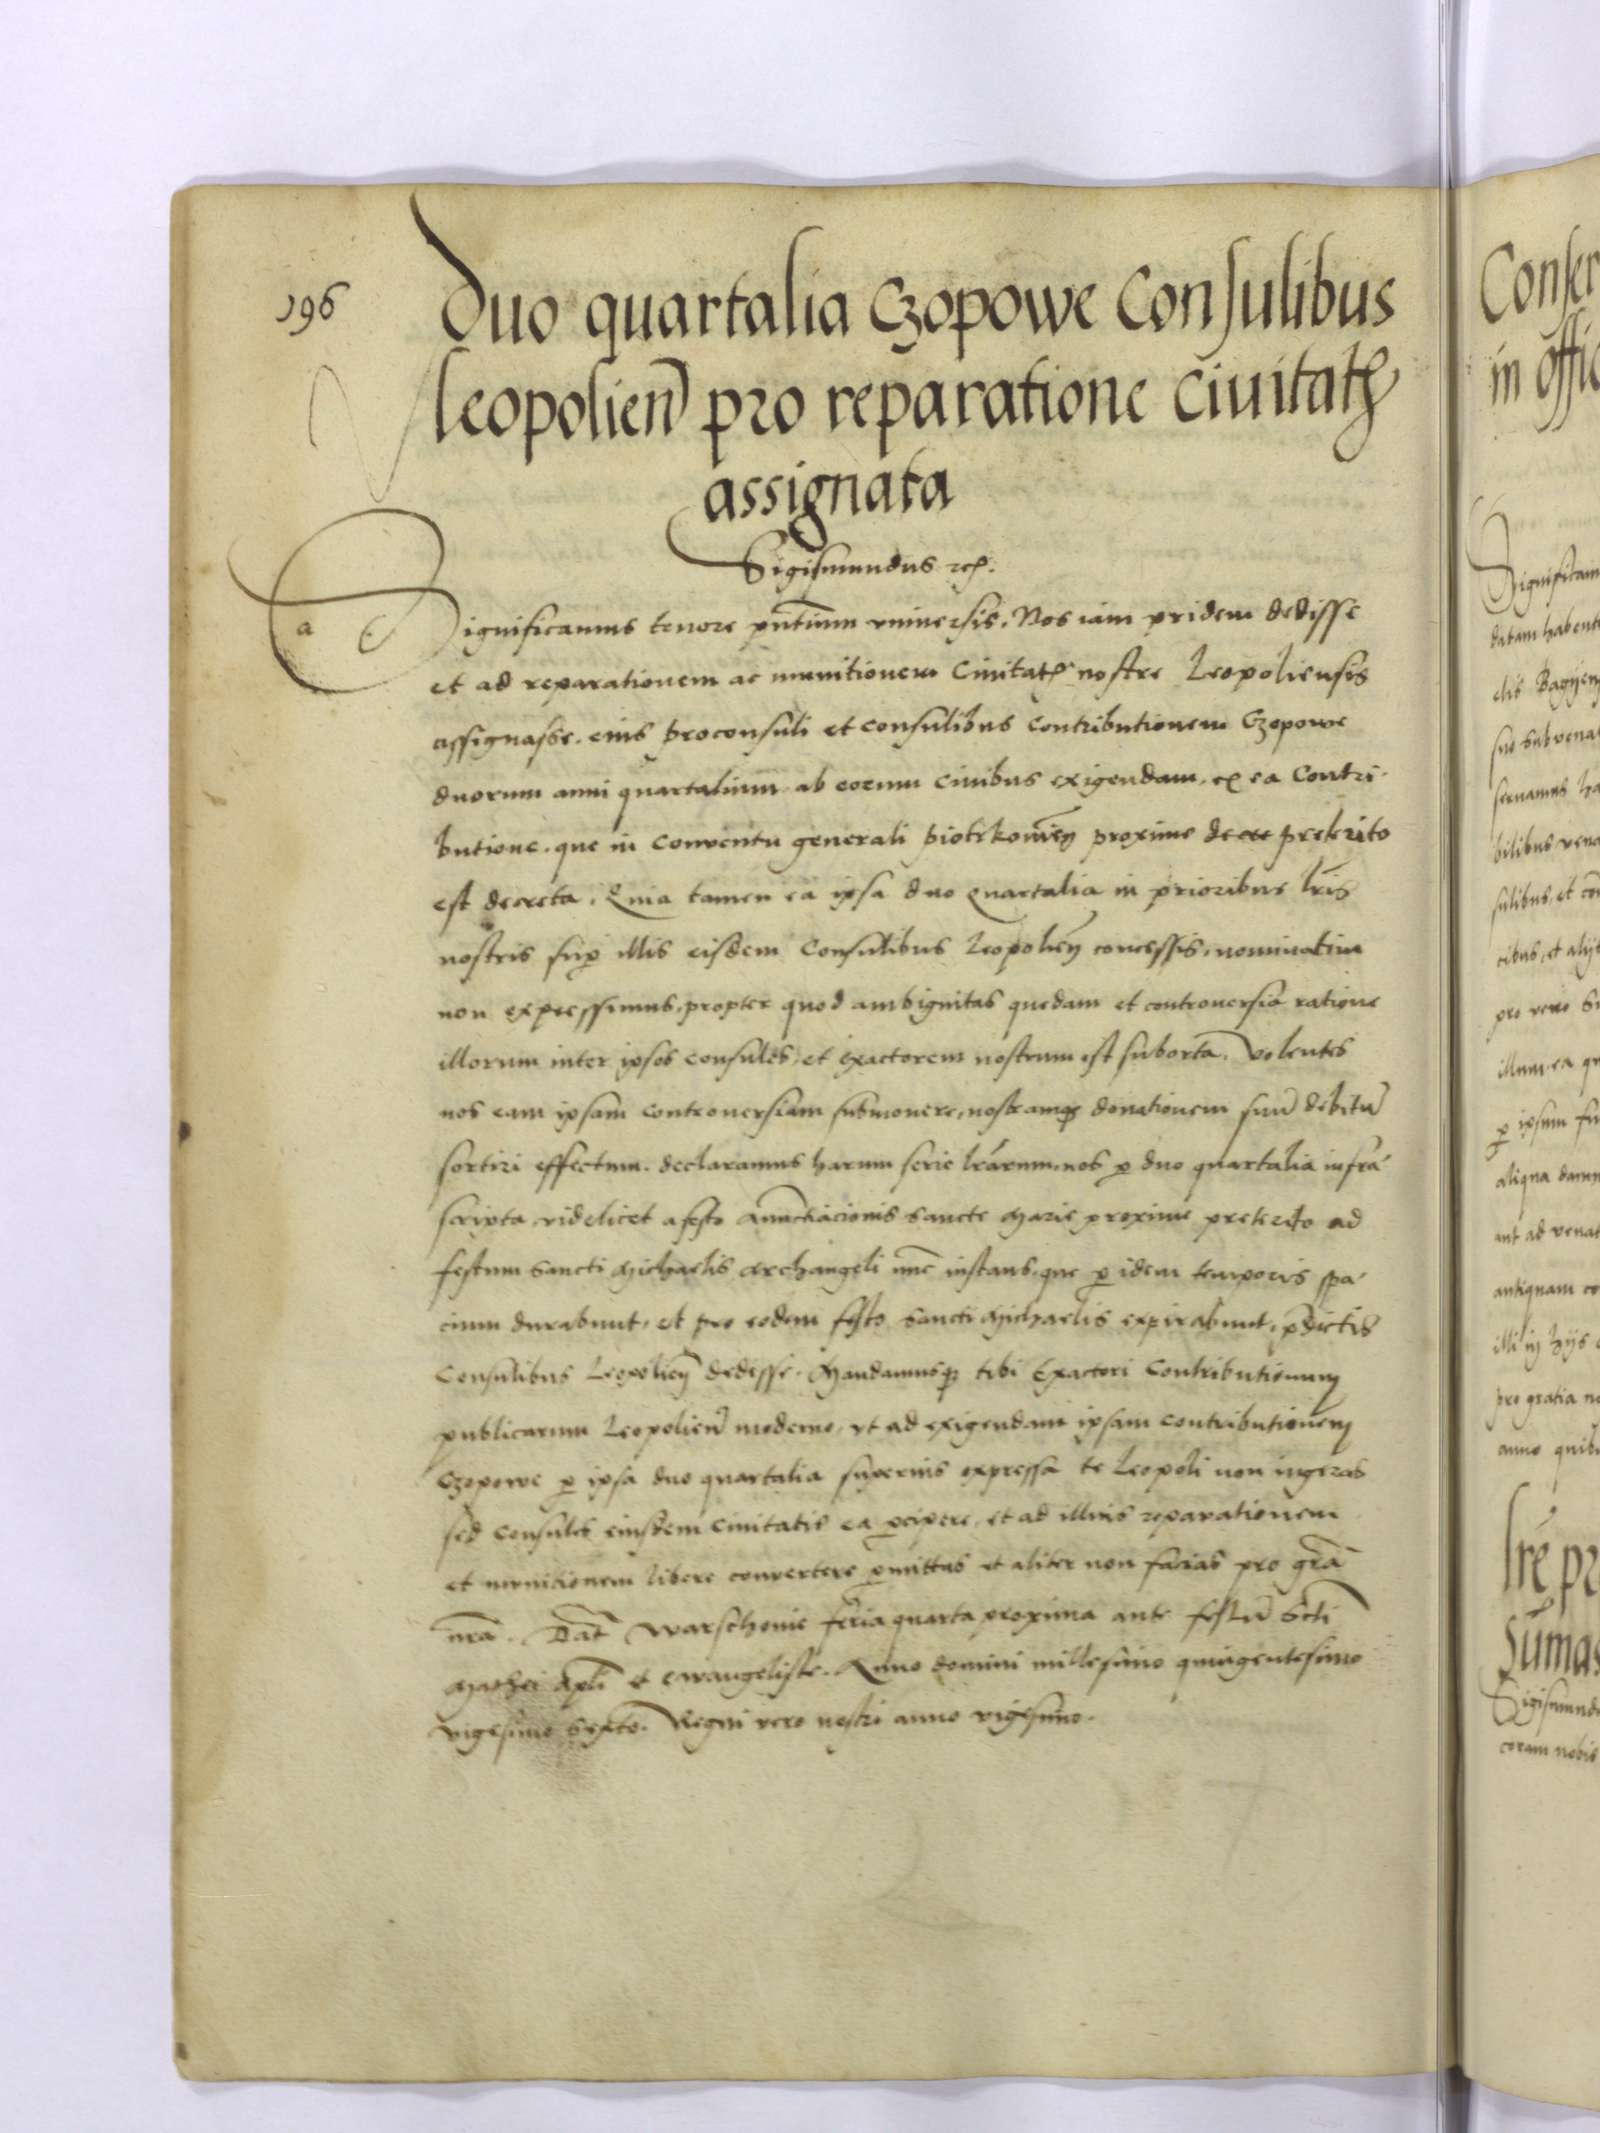 196
Duo quartalia Czopowe Consulibus
leopolien̄ pro reparatione Ciuitatꝭ
assignata
Sigismundus ꝛcꝭ.
a
Significamus tenore pn̄tium vniuersis. Nos iam pridem dedisse
et ad reparationem ac munitionem Ciuitatꝭ nostre Leopoliensis
assignasse. eius proconsuli et consulibus contributionem Czopowe
duorum anni quartalium ab eorum ciuibus exigendam. ex ea Contri-
butione. que in conventu generali piotrkowien̄ proxime preterito
est decreta. Quia tamen ea ipsa duo quartalia in prioribus lr̄is
nostris sup̱ illis eisdem Consulibus Leopolien̄ concessis, nominatim
non expressimus, propter quod ambiguitas quedam et controuersia ratione
illorum inter ipsos consules, et exactorem nostrum est suborta. Volentes
nos eam ipsam controuersiam submouere, nostramqꝫ donationem suū debitū
sortiri effectum. declaramus harum serie lr̄arum, nos ꝑ duo quartalia infra-
scripta videlicet a festo Annūciacionis Sancte Marie proxime preterito ad
festum Sancti Michaelis Archangeli nūc instans, que ꝑ idem temporis spa-
cium durabunt, et pro eodem festo Sancti Michaelis expirabunt, p̄dictis
Consulibus Leopolien̄ dedisse. Mandamusqꝫ tibi Exactori Contributionum
publicarum Leopolien̄ moderno, vt ad exigendam ipsam contributionem
Czopowe ꝑ ipsa duo quartalia superius expressa te Leopoli non ingeras
sed Consules eiusdem Ciuitatis ea ꝑcipere, et ad illius reparationem
et municionem libere convertere ꝑmittas et aliter non facias pro gr̄a
nr̄a. Dat̄ Warschouie feria quarta proxima ante festū Scti
Mathei Apli et evangeliste. Anno domini millesimo quingentesimo
vigesimo Sexto. Regni vero nostri anno vigesimo.
Conser
in offic
Significam
datam habent
suo subvenat
seruamus ha
bilibus vena
sulibus, et
cibus, et alijs
pro vero
illum, ea
ꝑ ipsum
aliqua damn
aut ad venat
antiquam co
pro gratia
anno quib
lr̄e pr
Sumas
Sigismund
coram nobis